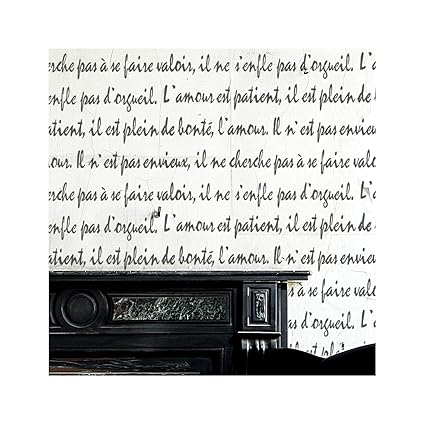 erche pas à se faire valoir, il ne s'enfle pas d'orgueil. L'a
enfle pas d'orgueil. L'amour est patient, il est plein de
atient, il est plein de bonté, l'amour. Il n'est pas envieu
our. Il n'est pas envieux, il ne cherche pas à se faire va
erche pas à se faire valoir, il ne s'enfle pas d'orgueil. L'a
enfle pas d'orgueil. L'amour est patient, il est plein de
atient, il est plein de bonté, l'amour. Il n'est pas envieu
s à se faire valo
as d'orgueil. L'a